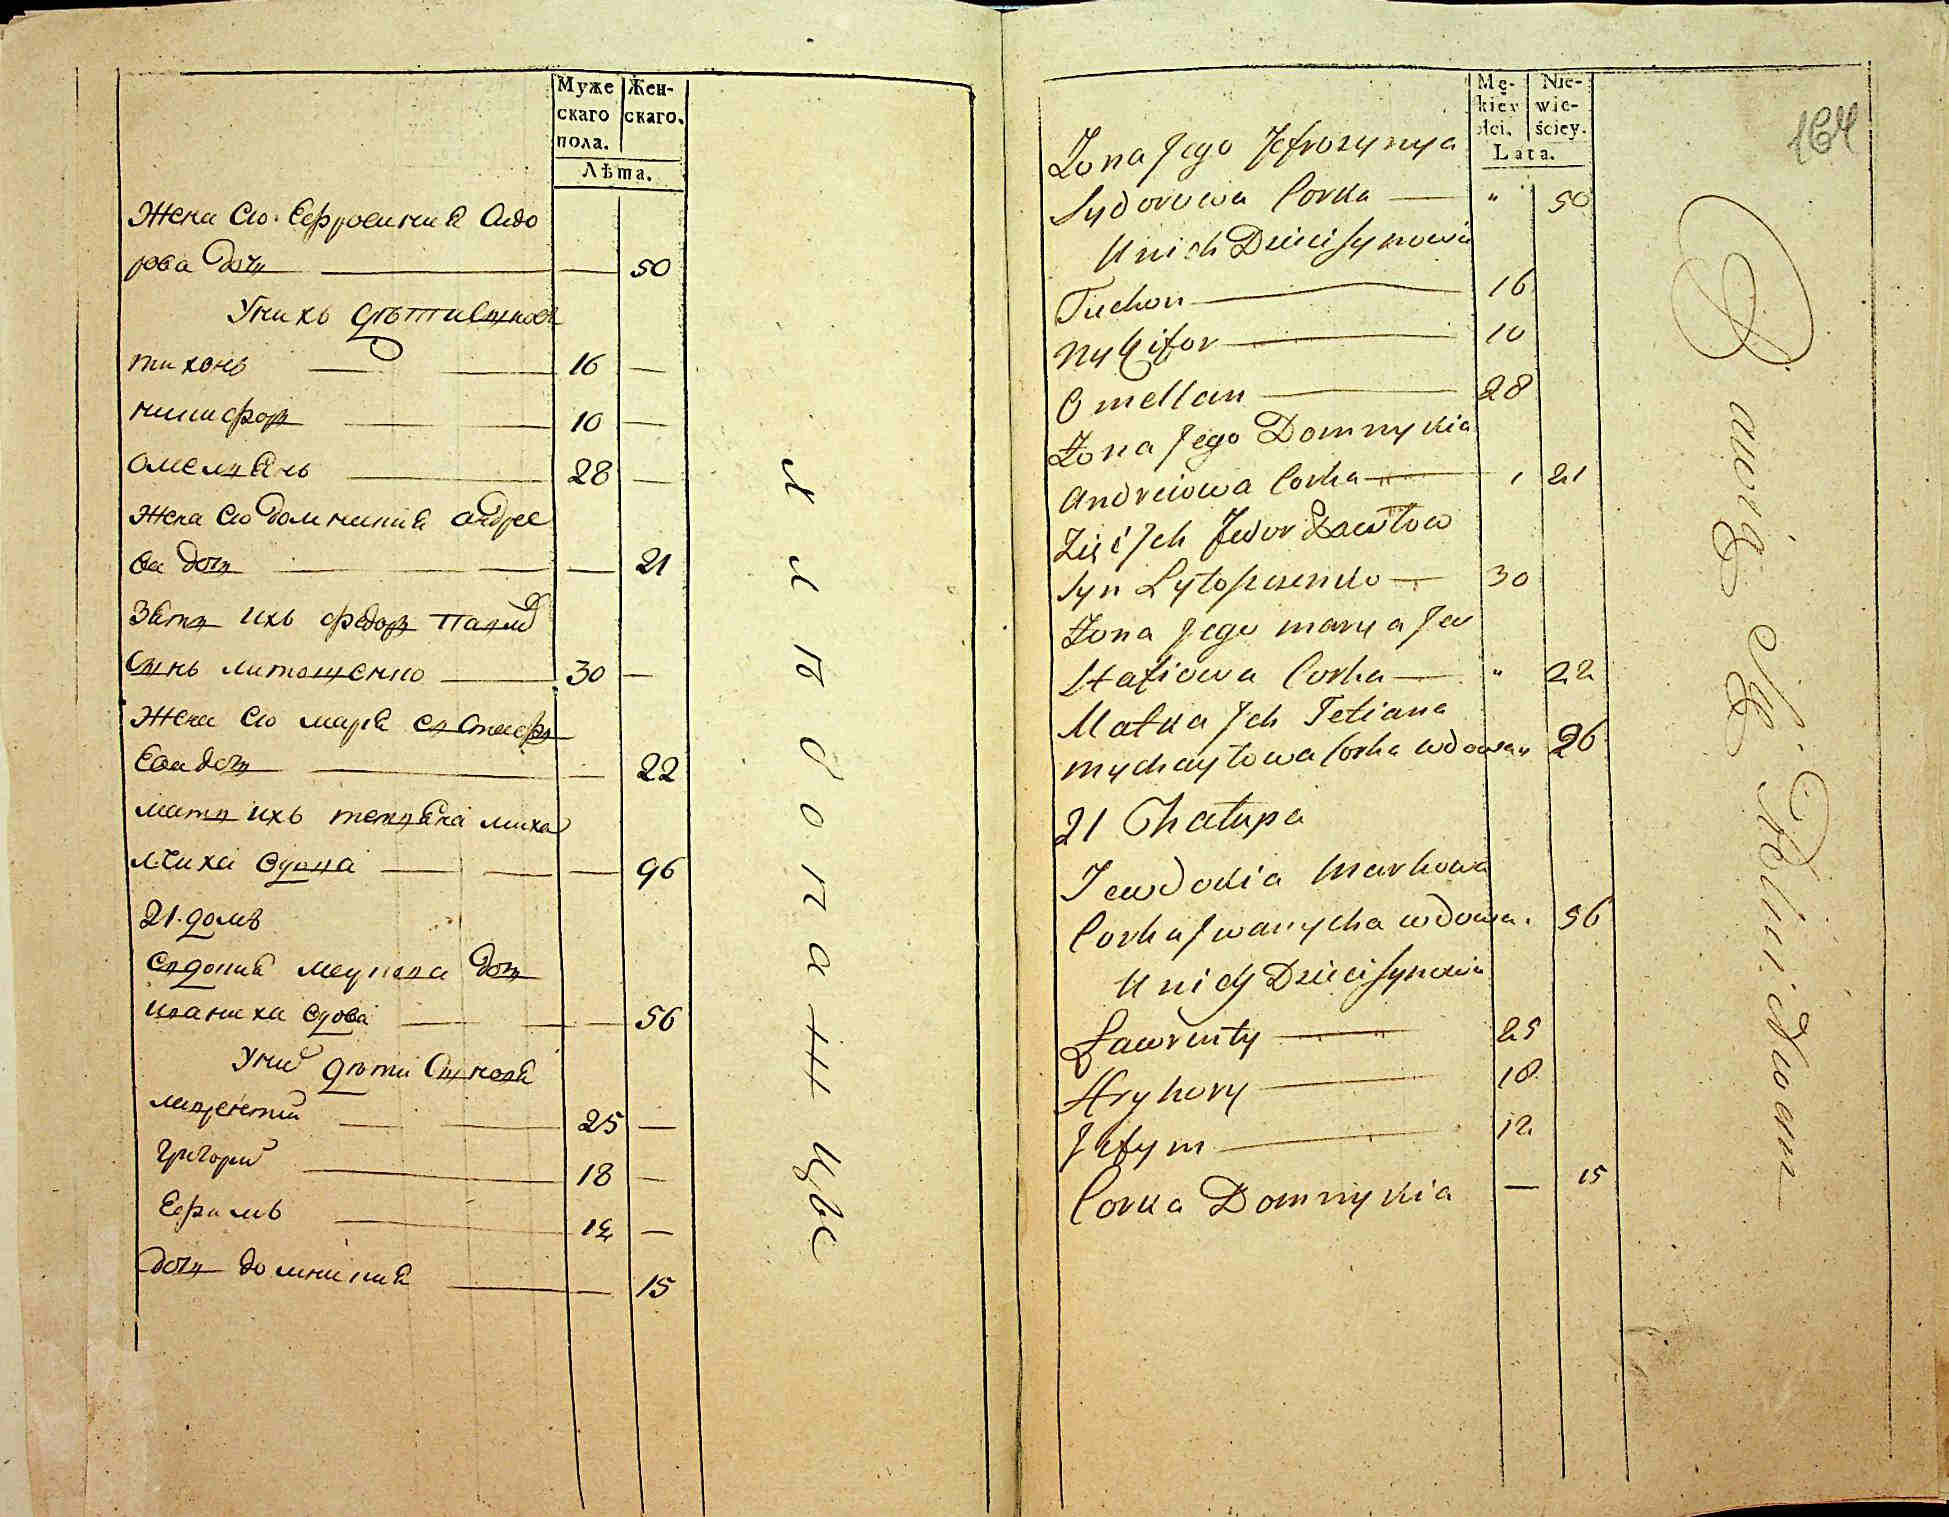 Муже
скаго
пола.
Жен-
скаго.
Лѣта.
Жена Его Ефросиния Сидо
рова дочь 50
У нихъ дѣти Сынове
тихонъ 16
никифор 10
омельянъ 28
Жена Его домникия андрее
ва дочь 21
Зять ихъ федор Павло
Сынъ литошенко 30
Жена Его маря евстафи
Ева дочь 22
мать ихъ тетьяна миха
йлиха вдова 96
21. домъ
евдокия маркова дочь
иваниха вдова 56
У ней дѣти Сынове
лаврентий 25
Григорий 18
Ефимъ 12
дочь домникия 15
Mę-
kiey
płci.
Nie-
wie-
ściey.
Lata.
164
Żona Jego Jefrozynya
Sydorowa Corka 50
U nich Dzieci Synowie
Tuchon 16
Nykifor 10
Omellan 28
Żona Jego Domnykia
Andreiowa Corka 21
Zięć Jch Fedor Pawłow
Syn Lytoszenko 30
Żona Jego Marya Jew
Stafiowa Corka 22
Matka Jch Tetiana
Mychayłowa Corka wdowa 96
21 Chałupa
Jewdokia Markowa
Corka Jwanycha wdowa 56
U niey Dzieci Synowie
Ławrenty 25
Hryhory 18
Jefym 12
Corka Domnykia 15